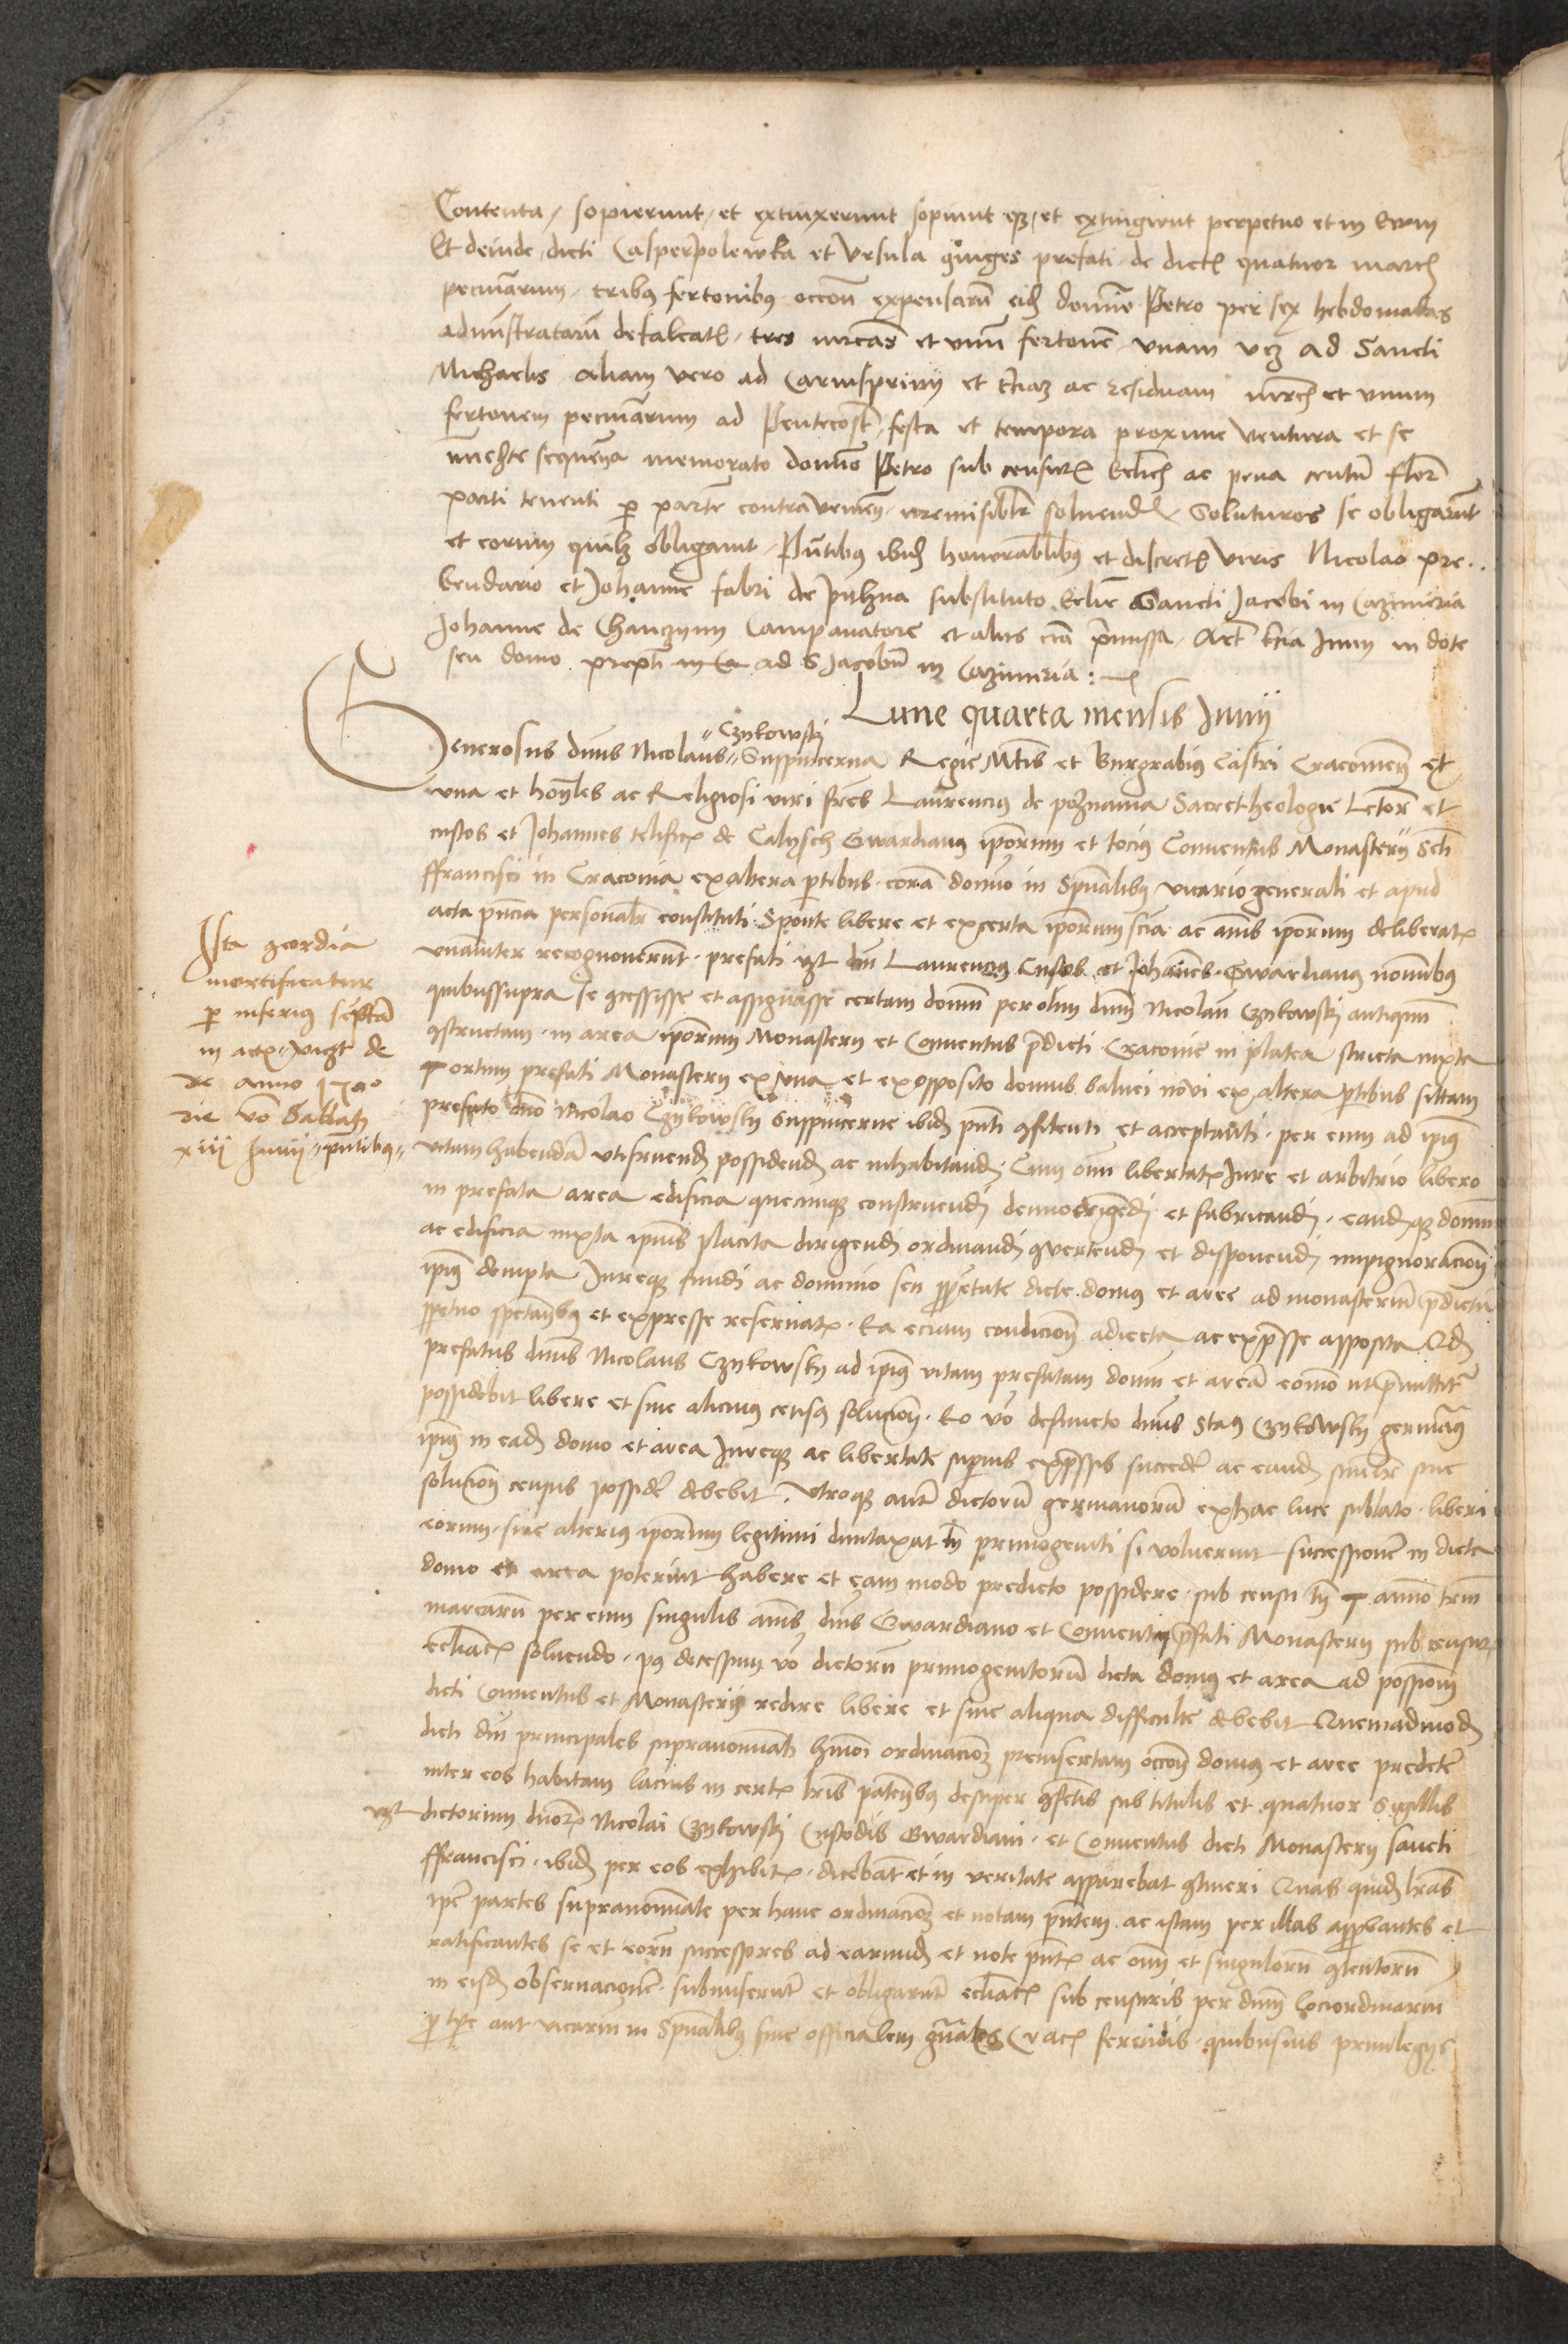 Contenta, sopierunt, et extinxerunt sopiunt eqz, et extingwnt perpetuo et in Evum
Et deinde, dicti Casper Polewka et Vrsula 9iuges prefati de dictis quatuor marcis
pecuniarum, tribus fertonibus occone expensarum eidem domino Petro per sex hebdomadas
administratarum defalcatis, tres mrcas et vnum fertonem, vnam vcz ad Sancti
Michaelis aliam vero ad Carnisprivij et terciam ac residuam mrcam et vnum
fertonem pecuniarum ad Pentecostes, festa et tempora proxime ventura et se
immediate sequencia memorato domino Petro sub censuris Ecclesiasticis ac pena centum flor
parti tenenti per partem contravenientem irremisibiliter solvendis Soluturos se obligarunt
et eorum quilibet obligavit, Pntibus ibidem honorabilibus et discretis viris Nicolao pre..
bendario et Johanne fabri de substituto Ecclesie Sancti Jacobi in Cazimiria
Johanne de Campanatore et aliis circa premissa, Act tercia Junii in dote
seu domo ad S Jacobum in Cazimiria :
Lune quarta mensis Junij
Generosus dnus Nicolaus " Czykowski Suppincerna Regie Mtis et Burgrabius Castri Cracoviensis ex
vna et honorabiles ac Religiosi viri fratres Laurencius de poznania Sacre theologie Lector et
custos et Johannes telificis de Calysch Gwardianus ipsorum et tocius Conuentus Monasterij Scti
ffrancisci in Cracovia ex altera partibus, coram domino in Spiritualibus vicario generali et apud
acta presencia personaliter constituti Sponte libere et ex certa ipsorum sciencia ac animis ipsorum deliberatis
vnanimiter recognouerunt, prefati vczt domini Laurencius Custos et Johannes Gwardianus nominibus
quibus supra se 9cessisse et assignasse certam domum per olim dominum Nicolaum Czykowski antiquum
9structam, in area ipsorum Monasterij et Conuentus predicti Cracouie in platea stricta iuxta
Portum prefati Monasterij ex vna et ex opposito domus balnei novi ex altera partibus sittam
prefato domino Nicolao Czykowsky Suppincerne ibidem presenti 9sitenti et acceptanti, per eum ad ipsius
vitam habendam vtifruendam possidendam ac inhabitandam, Cum omni libertate Jure et arbitrio libero
in prefata area edificia quecunque construendi denuo erigendi et fabricandi, eandemque domum
ac edificia iuxta ipsius placita dirigendi ordinandi 9vertendi et disponendi impignoracione
ipsius dempta Jureque fundi ac dominio seu proprietate dicte domus et aree ad monasterium predictum
perpetuo spectantibus et expresse reservatis. Ea eciam condicione adiecta ac expresse apposita Quod
prefatus dnus Nicolaus Czykowsky ad ipsius vitam prefatam domum et aream eo modo ut premittitur
possidebit libere et sine alicuius census solucione. Eo vero defuncto dnus Stanislaus Czykowsky germanus
ipsius in eadem domo et area Jureque ac libertate superius expressis succedere ac eandem similiter sine
solucione census possidere debebit, Vtroque autem dictorum germanorum ex hac luce sublato, liberi
eorum, sive alterius ipsorum legitimi duntaxat tamen primogeniti si voluerint successionem in dicta
domo et area poterint habere et eam modo predicto possidere, sub censu tamen per annum trium
marcarum per eum singulis annis dnis Gwardiano et Conuentui prefati Monasterij sub censuris
ecclesiasticis soluendo, post decessum vero dictorum primogenitorum dicta domus et area ad possessionem
dicti Conuentus et Monasterij redire libere et sine aliqua difficultate debebit Quemadmodum
dicti domini principales supranominati huiusmodi ordinacionem preinsertam occone domus et aree predicte
inter eos habitam lacius in certis literis patentibus desuper 9fectis sub titulis et quatuor Sigillis
vczt dictorum dnorum Nicolai Czykowski Custodis Gwardiani, et Conuentus dicti Monasterij sancti
ffrancisci, ibidem per eos exhibitis, dicebant et in veritate apparebat 9tineri Quas quidem literas
ipse partes supranominate per hanc ordinacionem et notam presentem, ac istam per illas approbantes et
ratificantes se et eorum successores ad earundem et note presentis ac omnium et singulorum 9tentorum
in eisdem observacionem, submiserunt et obligarunt ecclesiasticis sub censuris per dominum loci ordinarium
pro tempore aut vicarium in Spiritualibus sive officialem generales Crac ferendis, quibusuis privilegijs
Ista 9cordia
mortificatur
per inferius scriptam
in actis, vczt de
re anno 1 . 0
die vero Sabbati
xiiij Junij, pntibus,